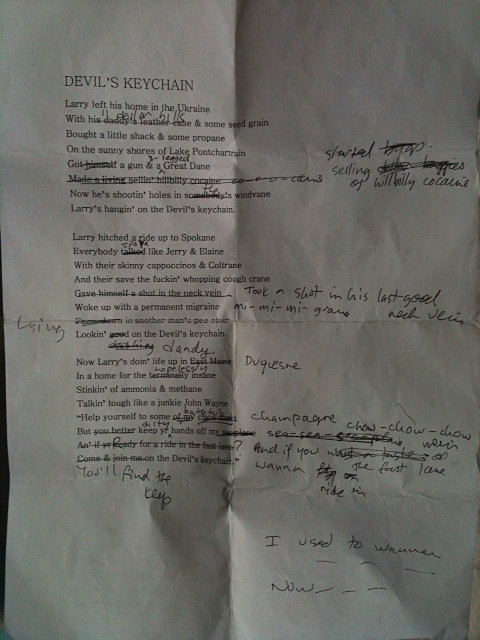 DEVIL'S KEYCHAIN
Larry left his home in the Ukraine
dollar bills
With his daddy's leather case & some seed grain
Bought a little shack & some propane
On the sunny shores of Lake Pontchartrain
3-legged
Got himself a gun & a Great Dane
started
selling
of hillbilly cocaine
Made a living sellin' hillbilly cocaine co-co-o-caine
the
Now he's shootin' holes in somebody's windvane
Larry's hangin' on the Devil's keychain.
Larry hitched a ride up to Spokane
spoke
Everybody talked like Jerry & Elaine
With their skinny cappuccinos & Coltrane
And their save the fuckin' whopping cough crane
Gave himself a shot in the neck vein
Took a shot in his last good neck vein
Woke up with a permanent migraine
mi-mi-mi-graine
in another man's pee stain
Lookin' good on the Devil's keychain.
dashing dandy
Now Larry's doin' life up in East Maine
Duquesne
hopelessly
In a home for the terminally insane
Stinkin' of ammonia & methane
Talkin' tough like a junkie John Wayne
"Help yourself to some of my
champagne chow-chow-chow
dirty
But you better keep yr hands off my seaplane
sea-sea-seaplane
An' if yr Ready for a ride in the fast lane?
And if you
wanna
the fast lane
ride in
Come & join me on the Devil's keychain."
You'll find the
key
I used to wanna
Now